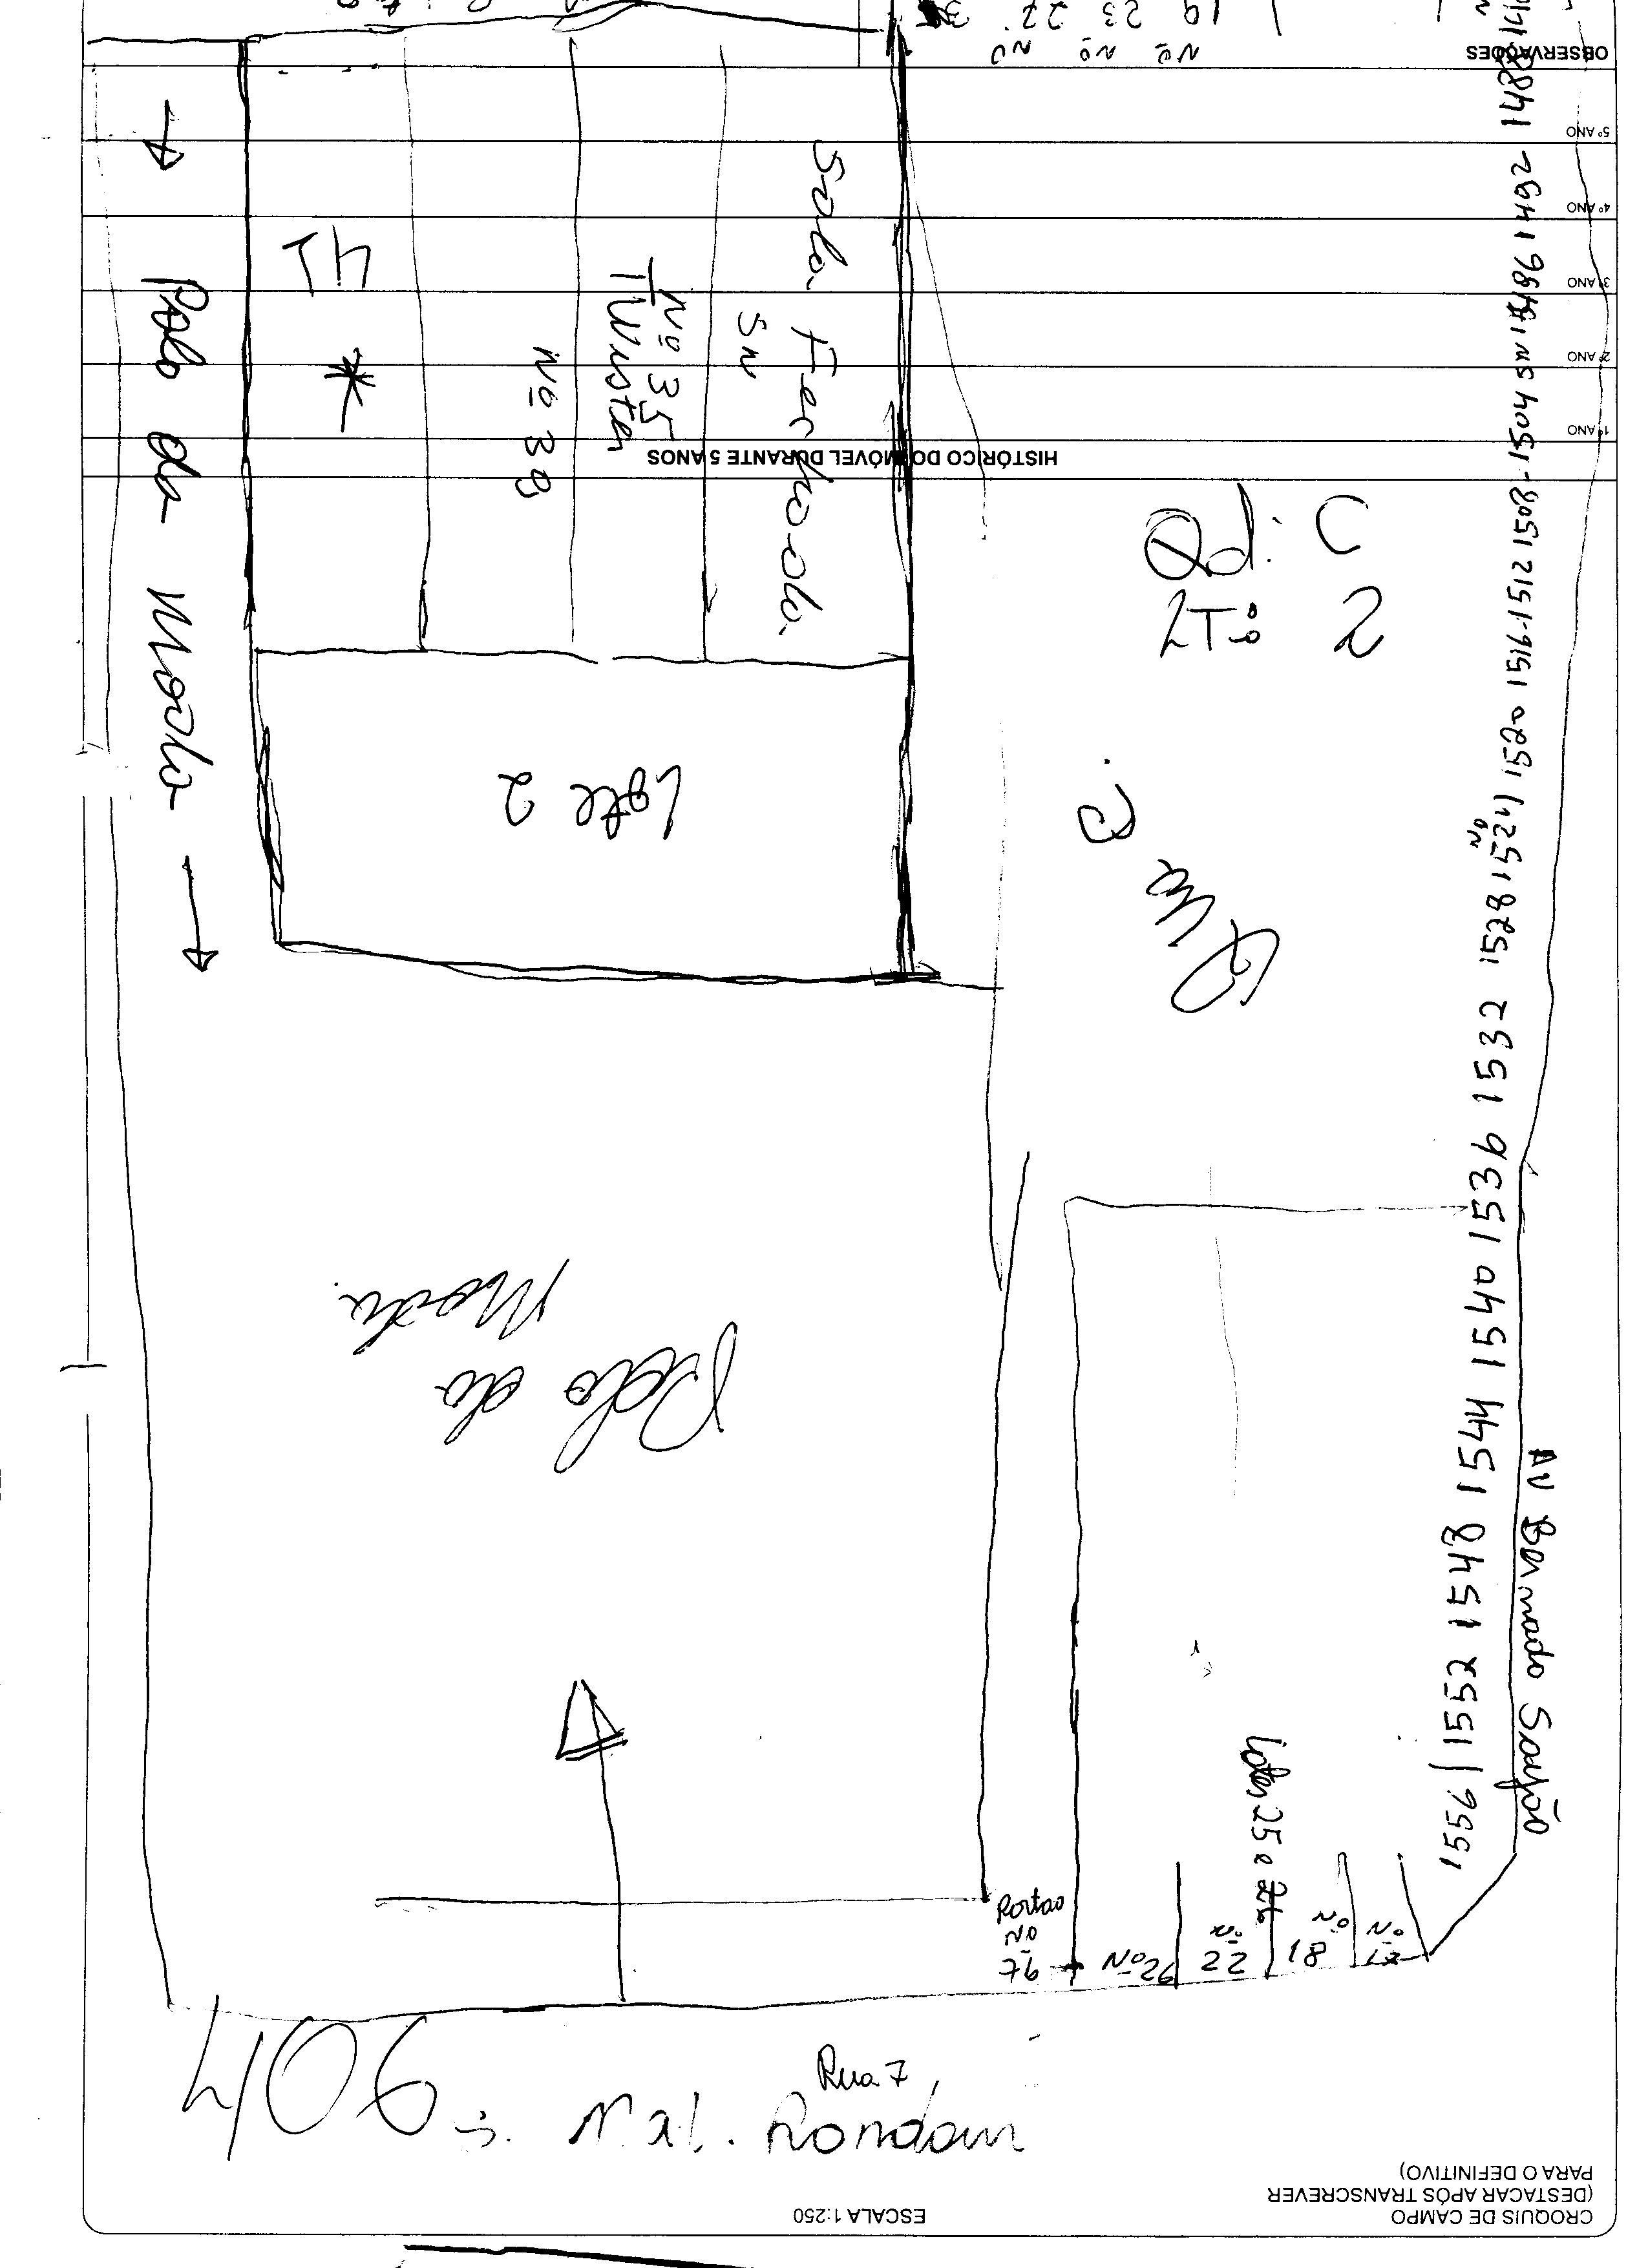 CROQUIS DE CAMPO
(DESTACAR APÓS TRANSCREVER
PARA O DEFINITIVO)
ESCALA 1:250
HISTÓRICO DO IMÓVEL DURANTE 5 ANOS
1º ANO
2º ANO
3º ANO
4º ANO
5º ANO
OBSERVAÇÕES
Nº Nº Nº
19 23 27
Polo da Moda
41
Nº 38
Nº 35
Twister
SN
Sala Fechada
Lote 2
Qd. C
Lt: 2
Rua B.
Polo da
Moda.
AV Bernado Sayão
1556 1552 1548 1544 1540 1536 1532 1528 1524 1520 1516 1512 1508 1504 SN 1496 1492
Nº
Lotes 25 e 26
Portao
Nº
Nº 26
Nº
22
Nº
18
Nº
Rua 7
Rondom